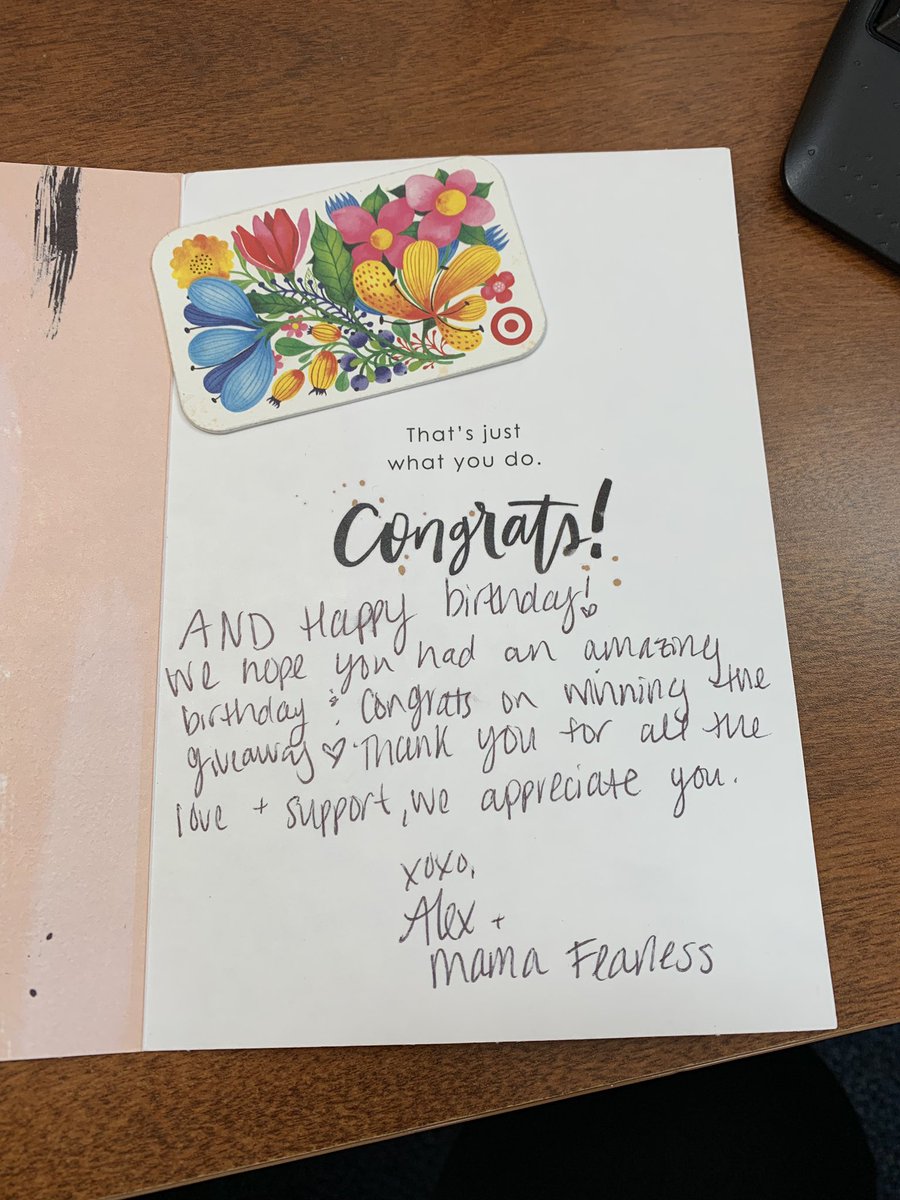 That's just
what you do.
Congrats!
AND Happy birthday!
We hope you had an amazing
birthday & congrats on winning the
giveaway ♡ Thank you for all the
love + support, we appreciate you.
xoxo,
Alex +
Mama Fearless